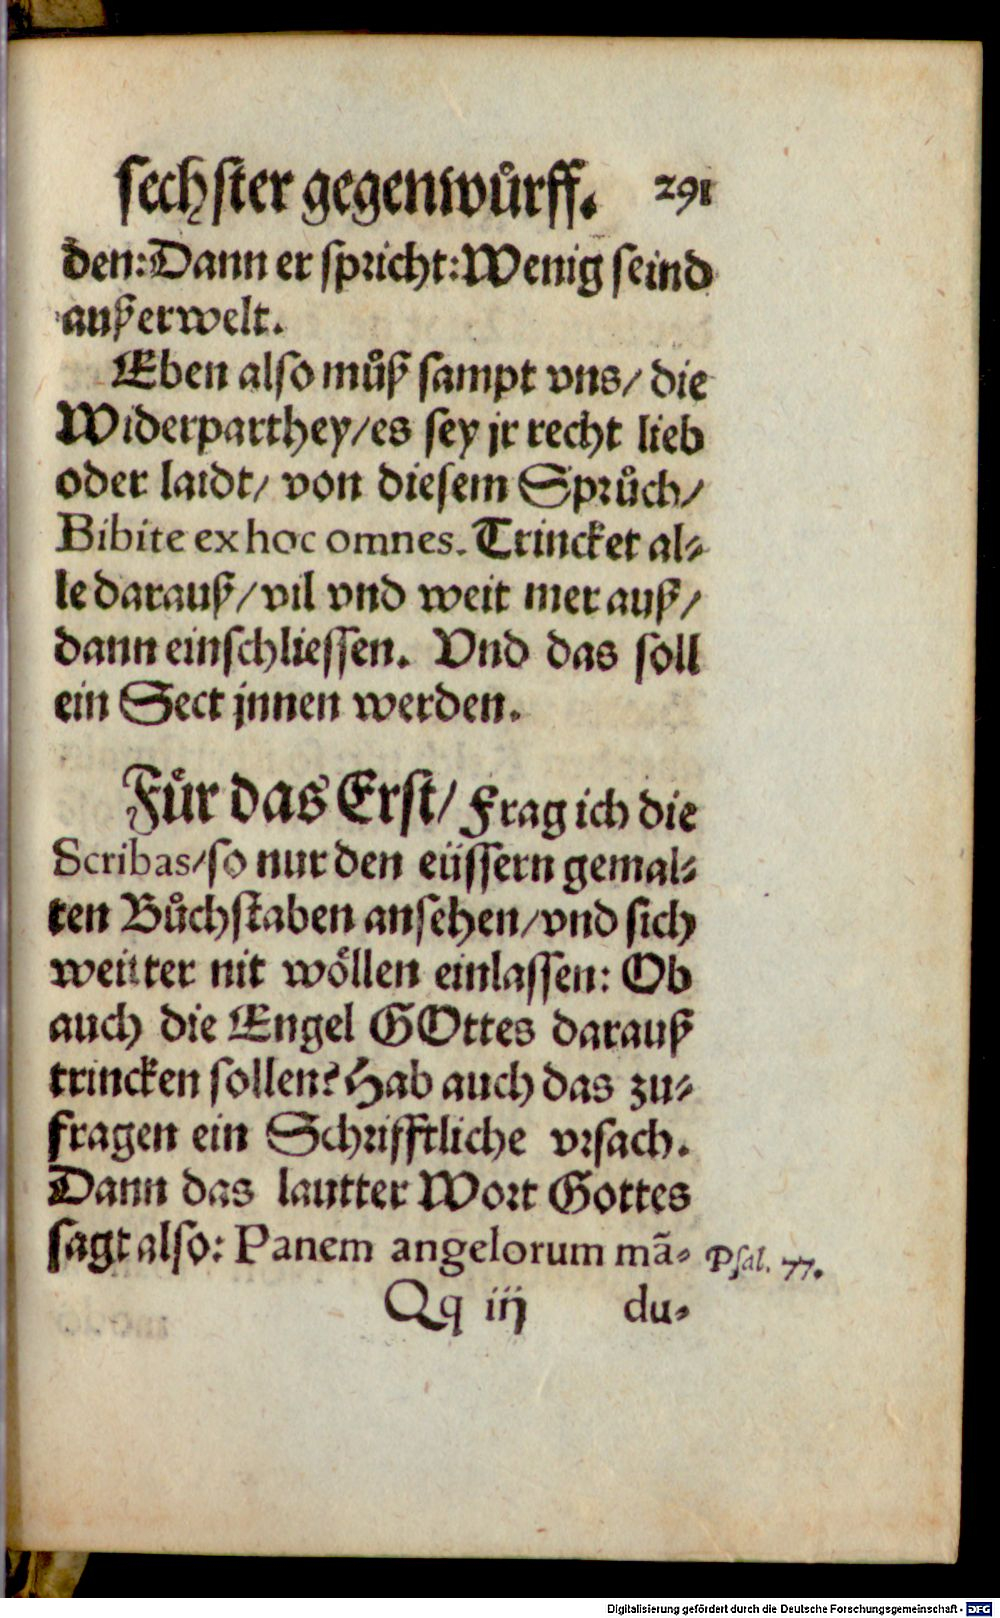 sechster gegenwuͤrff. 291
den: Dann er spricht: Wenig seind
außerwelt.
Eben also muͤß sampt vns/ die
Widerparthey/ es sey jr recht lieb
oder laidt/ von diesem Spruͤch/
Bibite ex hoc omnes. Trincket al⸗
le darauß/ vil vnd weit mer auß/
dann einschliessen. Vnd das soll
ein Sect jnnen werden.
Fuͤr das Erst/ Frag ich die
Scribas/ so nur den eüssern gemal⸗
ten Buͤchstaben ansehen/ vnd sich
weitter nit woͤllen einlassen: Ob
auch die Engel GOttes darauß
trincken sollen? Hab auch das zu⸗
fragen ein Schrifftliche vrsach.
Dann das lautter Wort Gottes
sagt also: Panem angelorum mã⸗
Psal. 77.
Qq iij du⸗
Digitalisierung gefördert durch die Deutsche Forschungsgemeinschaft - DFG